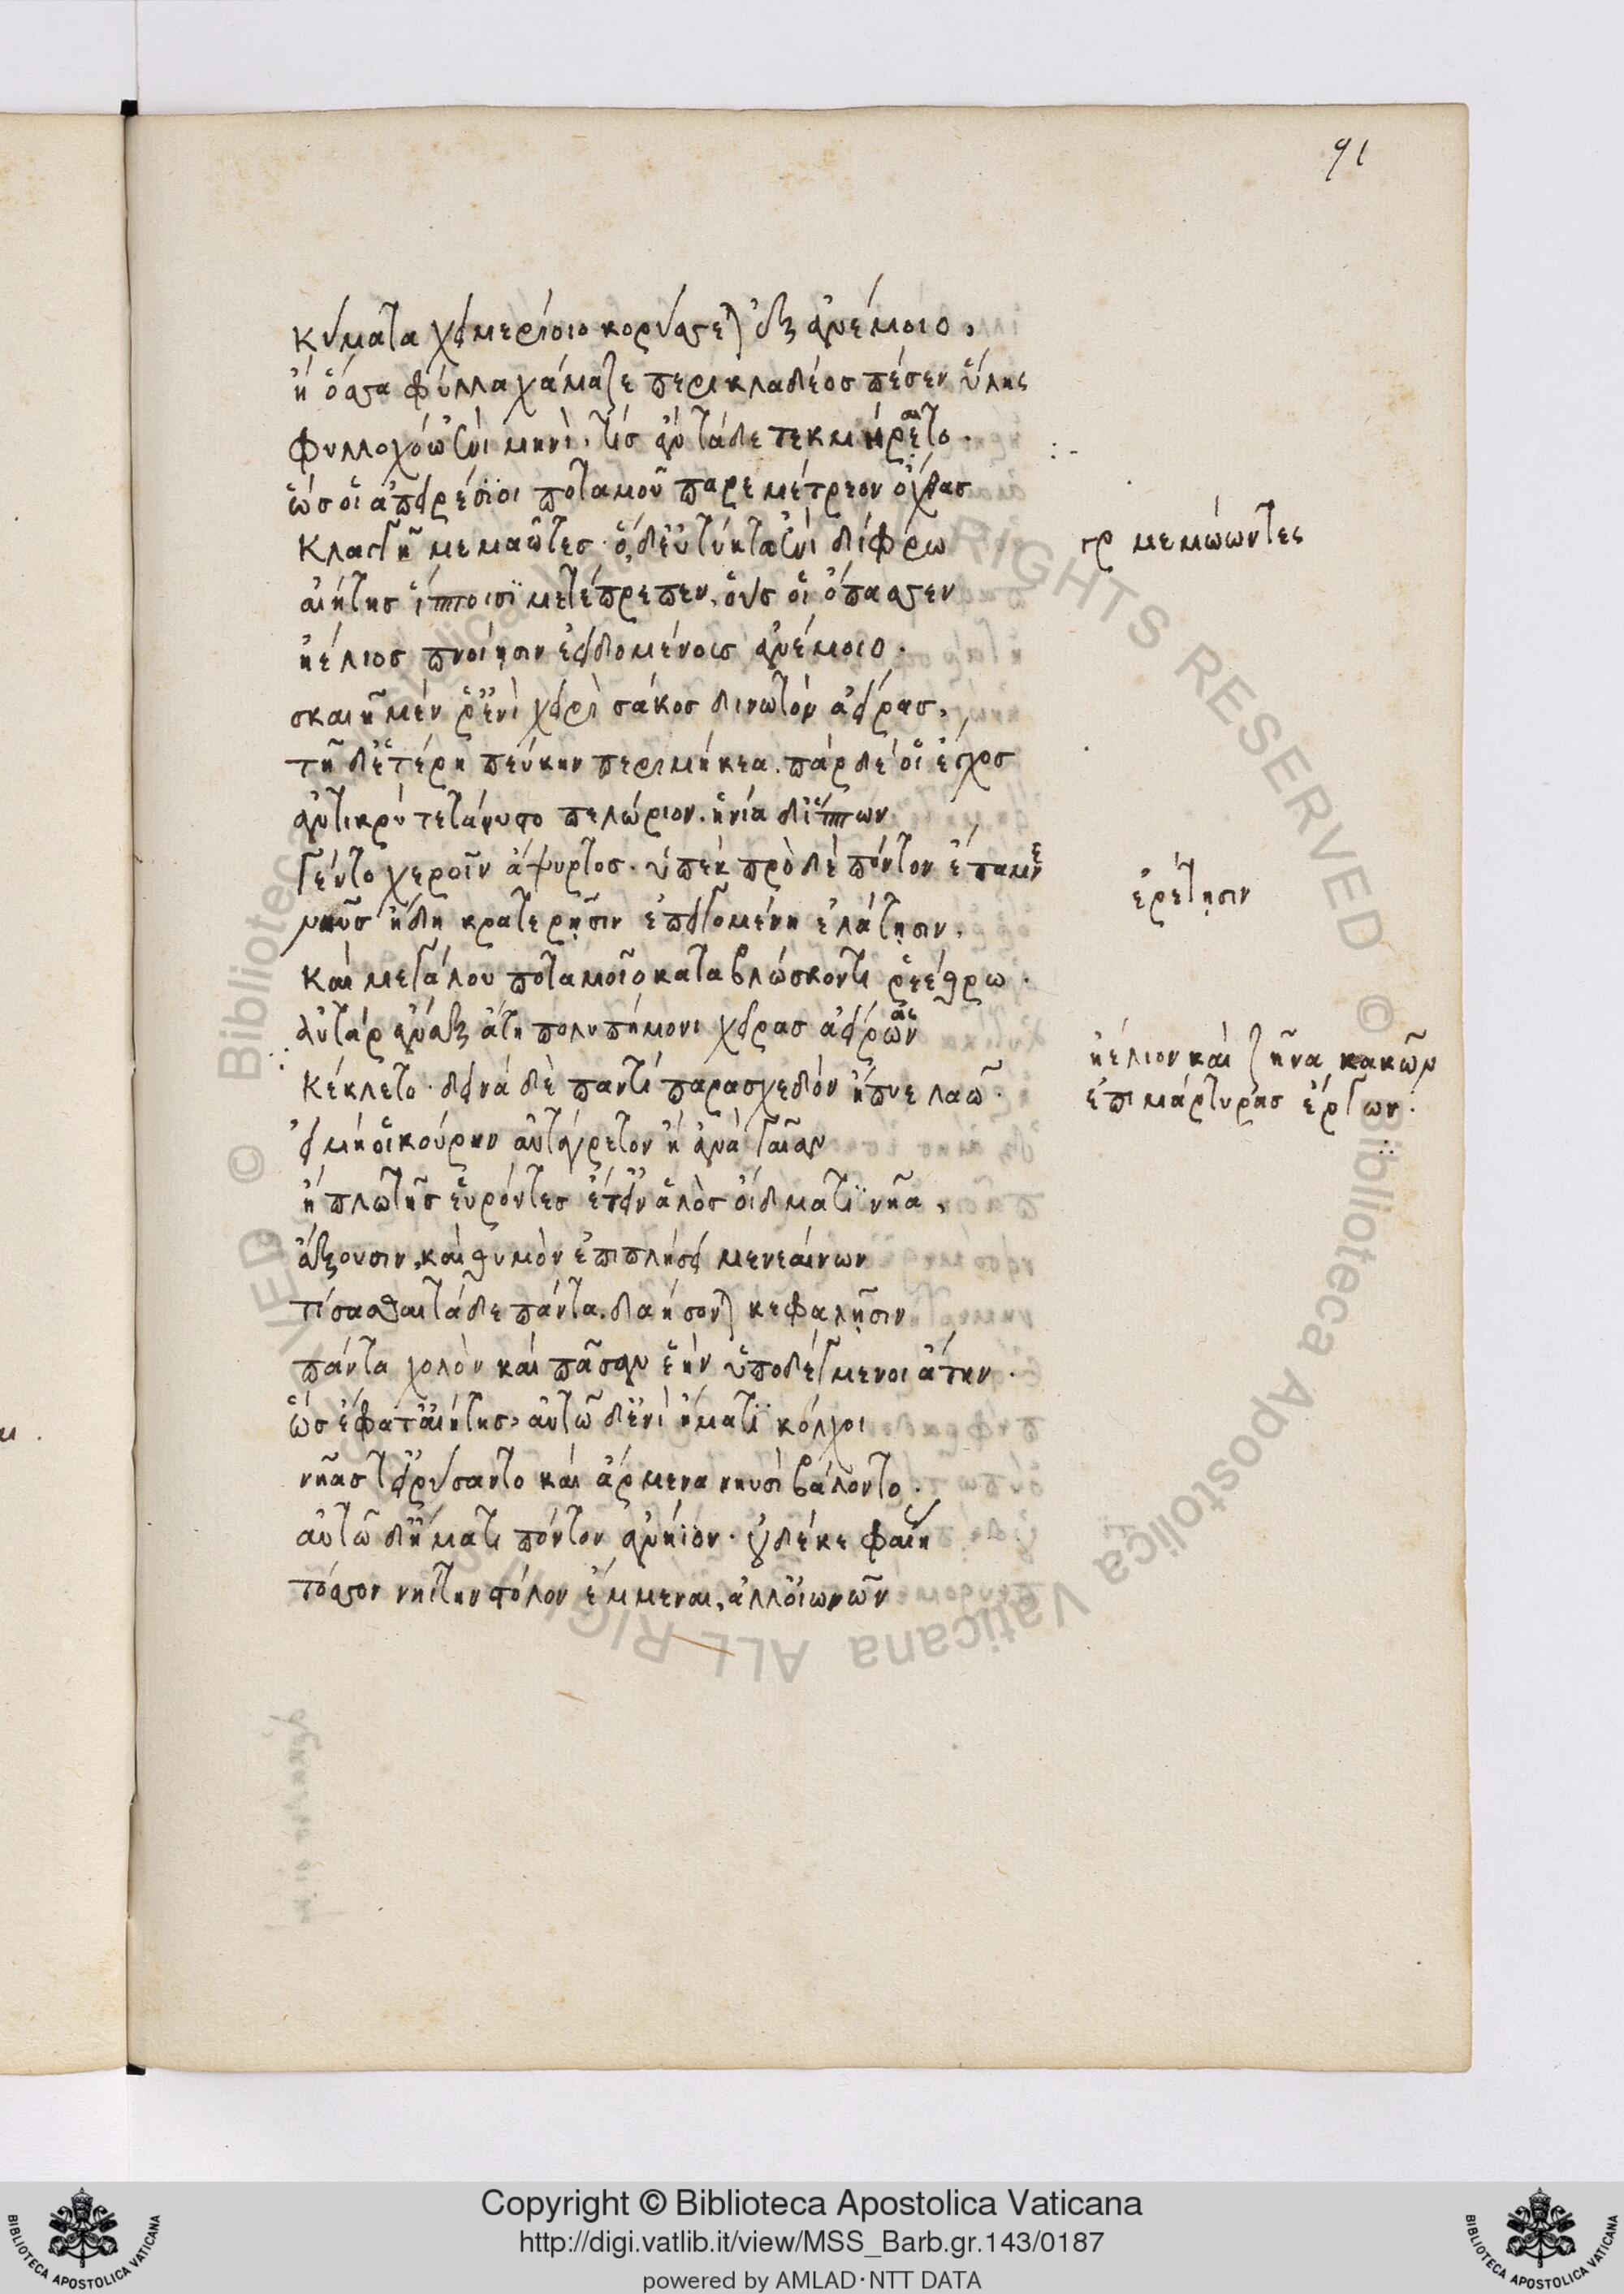 91
κύματα χειμερίοιο κορύσσεται ἐξ ἀνέμοιο,
ἢ ὅσσα φύλλα χάμαζε περικλαδέος πέσεν ὕλης
φυλλοχόῳ ἐνὶ μηνί. τίς ἂν τάδε τεκμήραιτο.
ὣς οἱ ἀπειρέσιοι ποταμοῦ παρεμέτρεον ὄχθας
κλαγγῇ μεμαῶτες· ὁ δ' εὐτύκτῳ ἐνὶ δίφρῳ
αἰήτης ἵπποισι μετέπρεπεν, οὕς οἱ ὄπασσεν
ἠέλιος πνοιῇσιν ἐειδομένους ἀνέμοιο.
σκαιῇ μέν ῥ' ἐνὶ χειρὶ σάκος δινωτὸν ἀείρας,
τῇ δ' ἑτέρῃ πεύκην περιμήκεα. πὰρ δέ οἱ ἔγχος
ἀντικρὺ τετάνυστο πελώριον. ἡνία δ' ἵππων
γέντο χεροῖν ἄψυρτος. ὑπὲκ πρὸ δὲ πόντον ἔταμνε
νηῦς ἤδη κρατερῇσιν ἐπειγομένη ἐλάτῃσιν.
καὶ μεγάλου ποταμοῖο καταβλώσκοντι ῥεέθρῳ.
αὐτὰρ ἄναξ ἄτῃ πολυπήμονι χεῖρας ἀείρων ας
κέκλετο. δεινὰ δὲ παντὶ παρασχεδὸν ἤπυε λαῷ.
εἰ μή οἱ κούρην αὐτάγρετον ἢ ἀνὰ γαῖαν
ἢ πλωτῆς εὑρόντες ἔτ' εἰν ἁλὸς οἴδματι νῆα,
ἄξουσιν, καὶ θυμὸν ἐπιπλήσει μενεαίνων
τίσασθαι τάδε πάντα. δαήσονται κεφαλῇσιν
πάντα χόλον καὶ πᾶσαν ἑὴν ὑποδέγμενοι ἄτην.
ὣς ἔφατ' αἰήτης, αὐτῷ δ' ἐνὶ ἤματι κόλχοι
νῆάς τ' εἰρύσαντο καὶ ἄρμενα νηυσὶ βάλοντο.
αὐτῷ δ' ἤματι πόντον ἀνήϊον. οὐδέ κε φαίης
τόσσον νηΐτην στόλον ἔμμεναι, ἀλλ' οἰωνῶν
γρ μεμώωντες
ἐρέτῃσιν
ἠέλιον καὶ ζῆνα κακῶν
ἐπιμάρτυρας ἔργων:
Copyright © Biblioteca Apostolica Vaticana
http://digi.vatlib.it/view/MSS_Barb.gr.143/0187
powered by AMLAD·NTT DATA
BIBLIOTECA APOSTOLICA VATICANA
BIBLIOTECA APOSTOLICA VATICANA
© Biblioteca Apostolica Vaticana ALL RIGHTS RESERVED